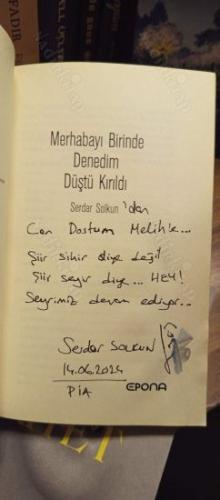 Merhabayı Birinde
Denedim
Düştü Kırıldı
Serdar Solkun 'dan
Can Dostum Melih'e...
Şiir sihir diye değil
Şiir seyir diye... HEY!
Seyrimiz devam ediyor...
Serdar SOLKUN
14.06.2024
PİA
EPONA